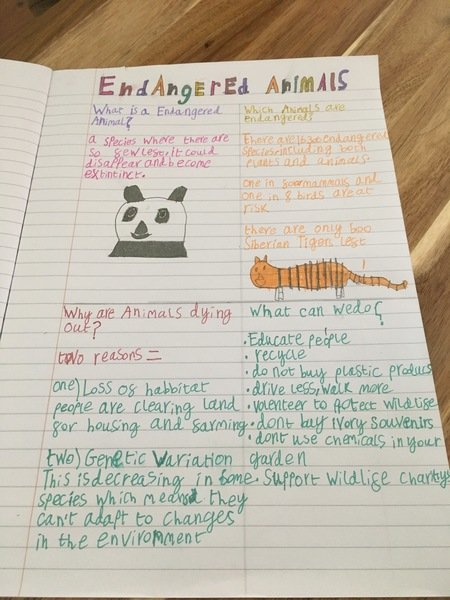 EndAngerEd AnimALS
What is a Endangered
Animal?
a species where there are
so few lest, it could
disappear and become
extintinct.
Which Animals are
endangered?
There are endangered
species including both
plants and animals
one in mammals and
one in 8 birds are at
risk
there are only 600
Siberian Tigers lest
Why are Animals dying
out?
two reasons =
one) Loss of habbitat
people are clearing land
for housing and farming
two) Genetic Variation
This is decreasing in some
species which means they
can't adapt to changes
in the environment
What can we do?
• Educate people
• recycle
• do not buy plastic produce
• drive less, walk more
• volenteer to protect wildlife
• dont buy ivory souvenirs
• dont use chemicals in your
garden
• Support wildlife charity